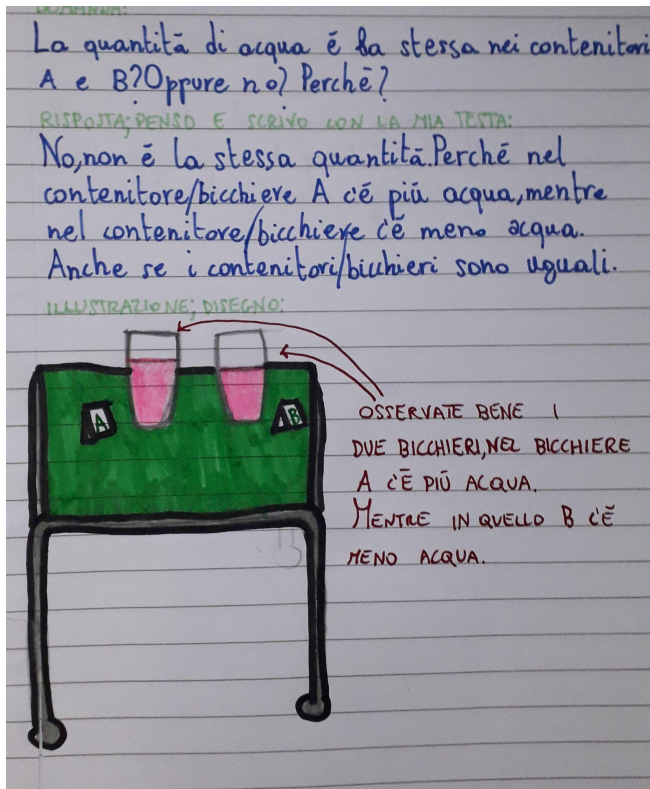 DOMANDA:
La quantitā di acqua ē la stessa nei contenitori
A e B? Oppure no? Perchē?
RISPOSTA; PENSO E SCRIVO CON LA MIA TESTA:
No, non ē la stessa quantitā. Perchē nel
contenitore/bicchiere A c'ē piū acqua, mentre
nel contenitore/bicchiere c'ē meno acqua.
Anche se i contenitori/bicchieri sono uguali.
ILLUSTRAZIONE; DISEGNO:
A
B
OSSERVATE BENE I
DUE BICCHIERI, NEL BICCHIERE
A C'Ē PIŪ ACQUA.
MENTRE IN QUELLO B C'Ē
MENO ACQUA.